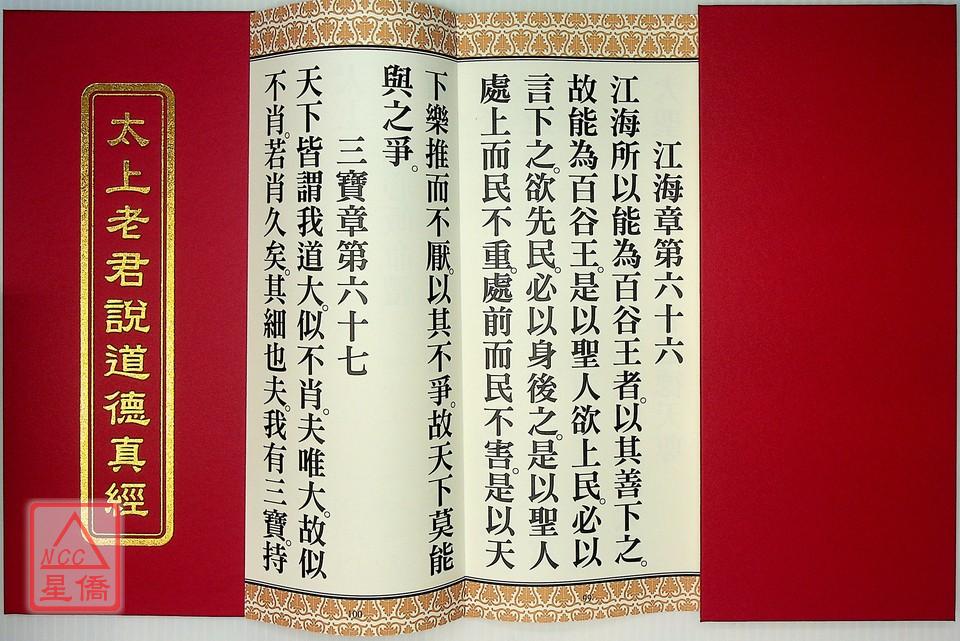 太上老君說道德真經
江海章第六十六
江海所以能為百谷王者。以其善下之。
故能為百谷王。是以聖人欲上民。必以
言下之。欲先民。必以身後之。是以聖人
處上而民不重。處前而民不害。是以天
下樂推而不厭。以其不爭。故天下莫能
與之爭。
三寶章第六十七
天下皆謂我道大。似不肖。夫唯大。故似
不肖。若肖久矣。其細也夫。我有三寶。持
99
100
NCC
星僑